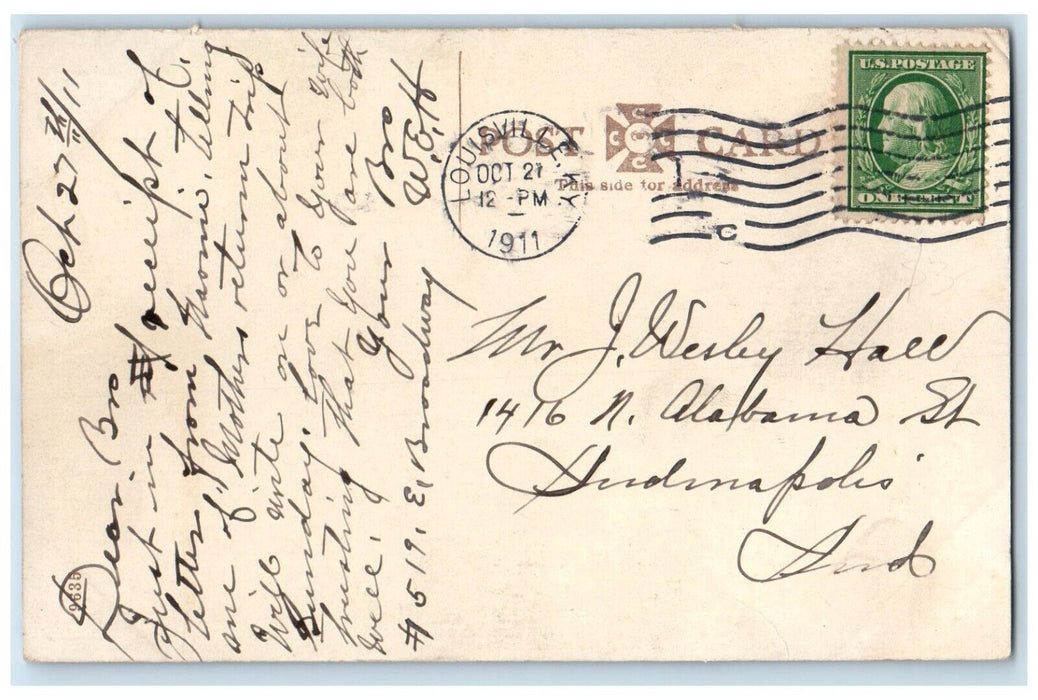 Oct 27 th/11
Dear Bro
Just in # receipt of
letters from Naomi, & T.C.
one of Mothers return trip telling
Will write on or about
Sunday. Love to your wife
trusting that you are both
well. Your Bro
W.E.H
#519. E. Broadway
9635
POST CARD
This side for address
LOUISVILLE KY
OCT 27
12-PM
1911
C
U.S. POSTAGE
ONE CENT
Mr J. Wesley Hall
1416 N. Alabama St
Indinapolis
Ind